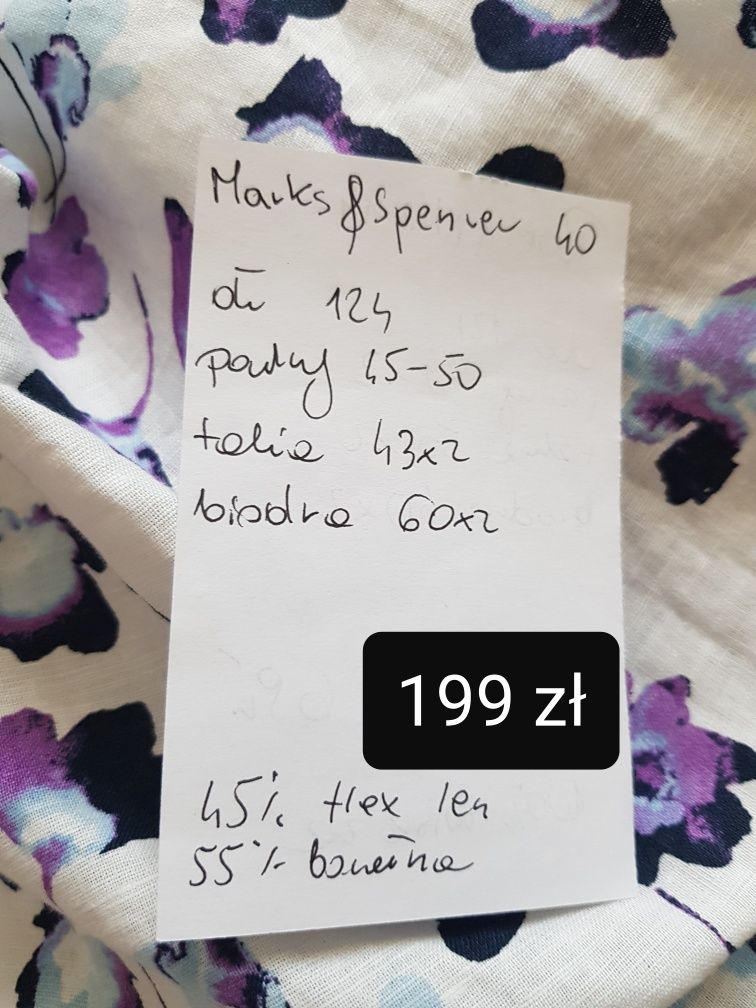 Marks & Spencer 40
dł 124
pachy 45-50
talia 43x2
biodra 60x2
199 zł
45% flex len
55% bawełna